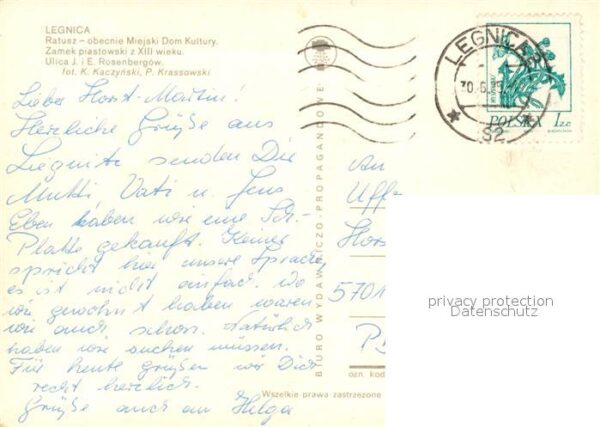 LEGNICA
Ratusz — obecnie Miejski Dom Kultury.
Zamek piastowski z XIII wieku.
Ulica J. i E. Rosenbergów.
fot. K. Kaczyński, P. Krassowski
Lieber Horst-Martin!
Herzliche Grüße aus
Liegnitz senden Dir
Mutti Vati u. Jens
Eben haben wir eine Sch.-
Platte gekauft. Keiner
spricht hier unsere Sprache,
es ist nicht einfach. Wo
wir gewohnt haben waren
wir auch schon. Natürlich
haben wir suchen müssen.
Für heute grüßen wir Dich
recht herzlich.
Grüße auch an Helga
BIURO WYDAWNICZO-PROPAGANDOWE
LEGNICA
S2
POLSKA 1 ZŁ
An
Uffz
Hors
5701
ozn. kod
Wszelkie prawa zastrzeżone
privacy protection
Datenschutz